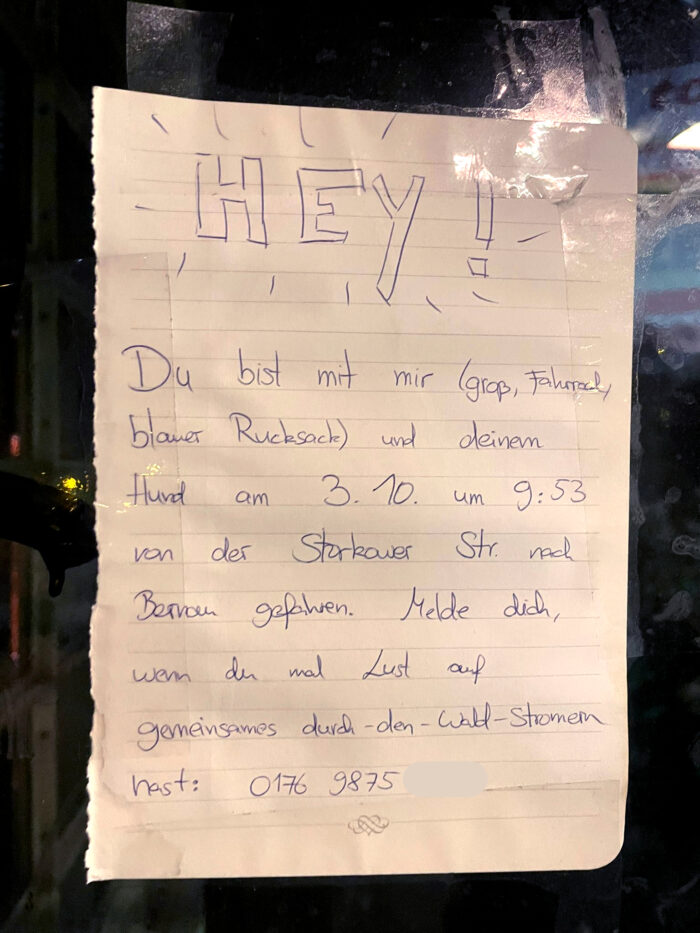 HEY!
Du bist mit mir (groß, Fahrrad,
blauer Rucksack) und deinem
Hund am 3.10. um 9:53
von der Storkower Str. nach
Bernau gefahren. Melde dich,
wenn du mal Lust auf
gemeinsames durch-den-Wald-Stromern
hast: 0176 9875